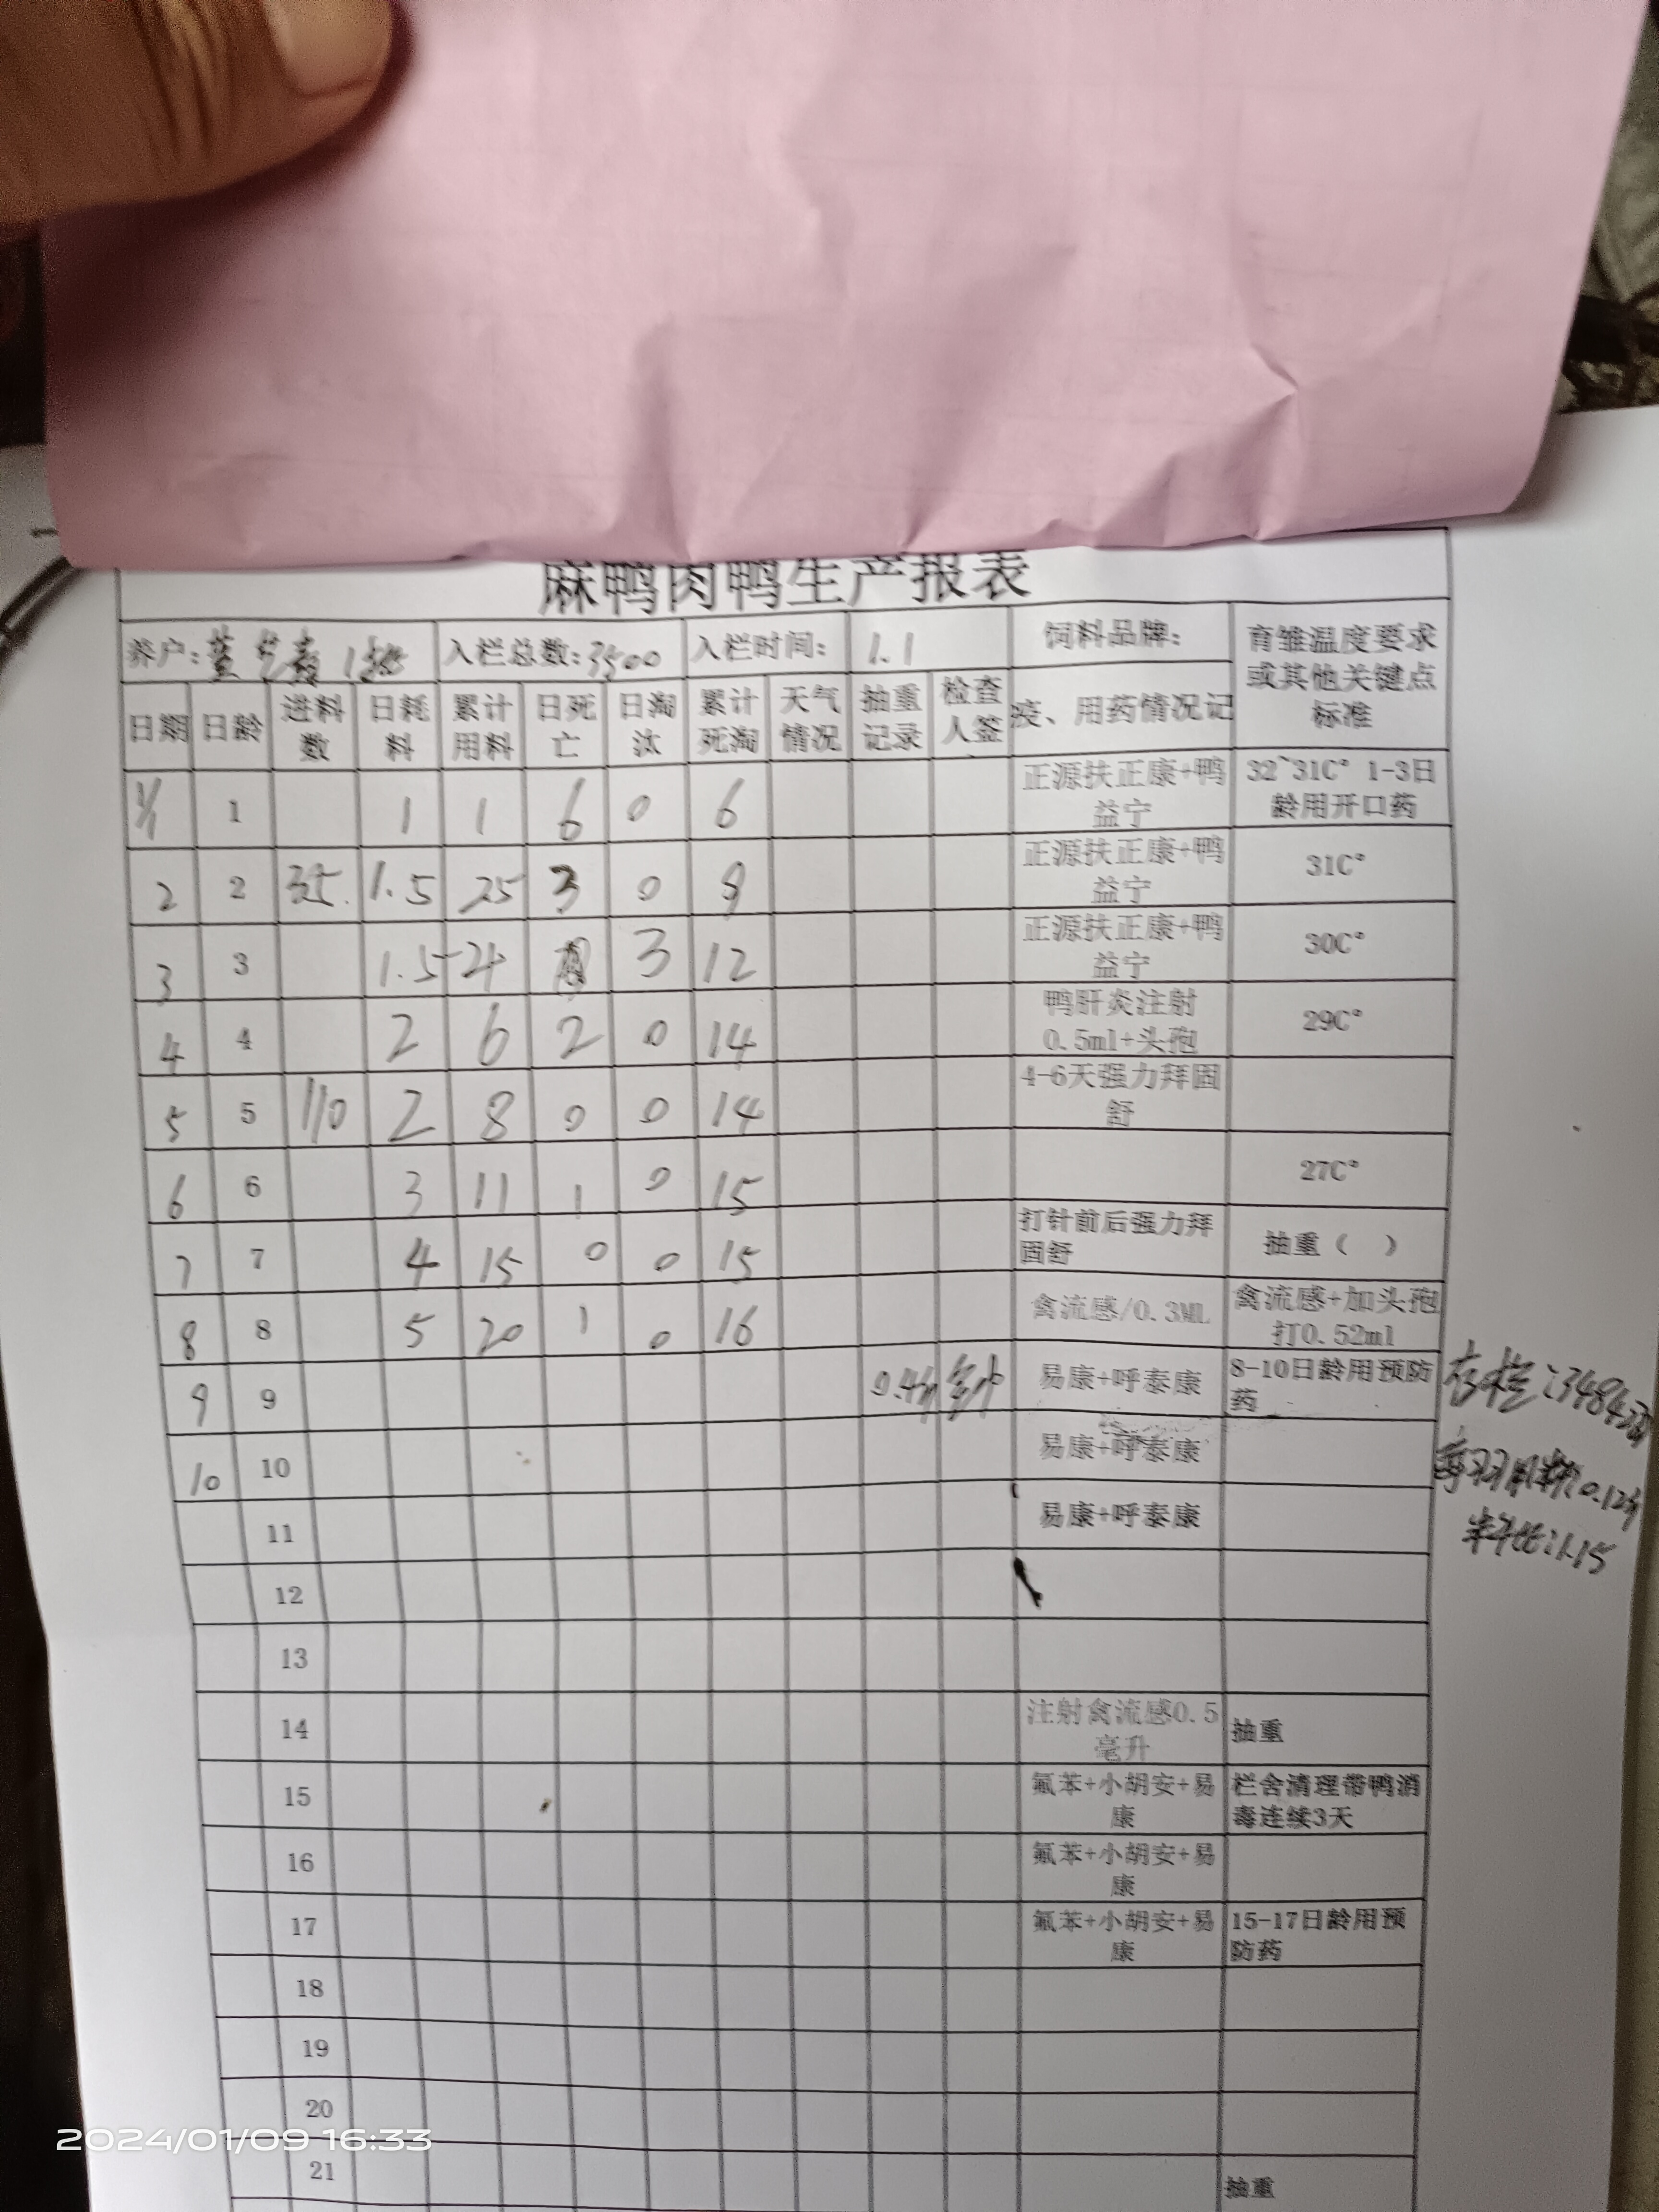 麻鸭肉鸭生产报表
养户: 入栏总数:3500 入栏时间: 1.1 饲料品牌: 育雏温度要求或其他关键点标准
日期 日龄 进料数 日耗料 累计用料 日死亡 日淘汰 累计死淘 天气情况 抽重记录 检查人签 疫、用药情况记
1/1 1 1 1 6 0 6 正源扶正康+鸭益宁 32~31C° 1-3日龄用开口药
2 2 35. 1.5 25 3 0 9 正源扶正康+鸭益宁 31C°
3 3 1.5 4 3 12 正源扶正康+鸭益宁 30C°
4 4 2 6 2 0 14 鸭肝炎注射0.5ml+头孢 29C°
5 5 110 2 8 0 0 14 4-6天强力拜固舒
6 6 3 11 1 0 15 27C°
7 7 4 15 0 0 15 打针前后强力拜固舒 抽重( )
8 8 5 20 1 0 16 禽流感/0.3ML 禽流感+加头孢打0.52ml
9 9 易康+呼泰康 8-10日龄用预防药 存栏:3484羽
10 10 易康+呼泰康 每羽用料:0.12
11 易康+呼泰康 料比:1.15
12
13
14 注射禽流感0.5毫升 抽重
15 氟苯+小胡安+易康 栏舍清理带鸭消毒连续3天
16 氟苯+小胡安+易康
17 氟苯+小胡安+易康 15-17日龄用预防药
18
19
20
21 抽重
2024/01/09 16:33